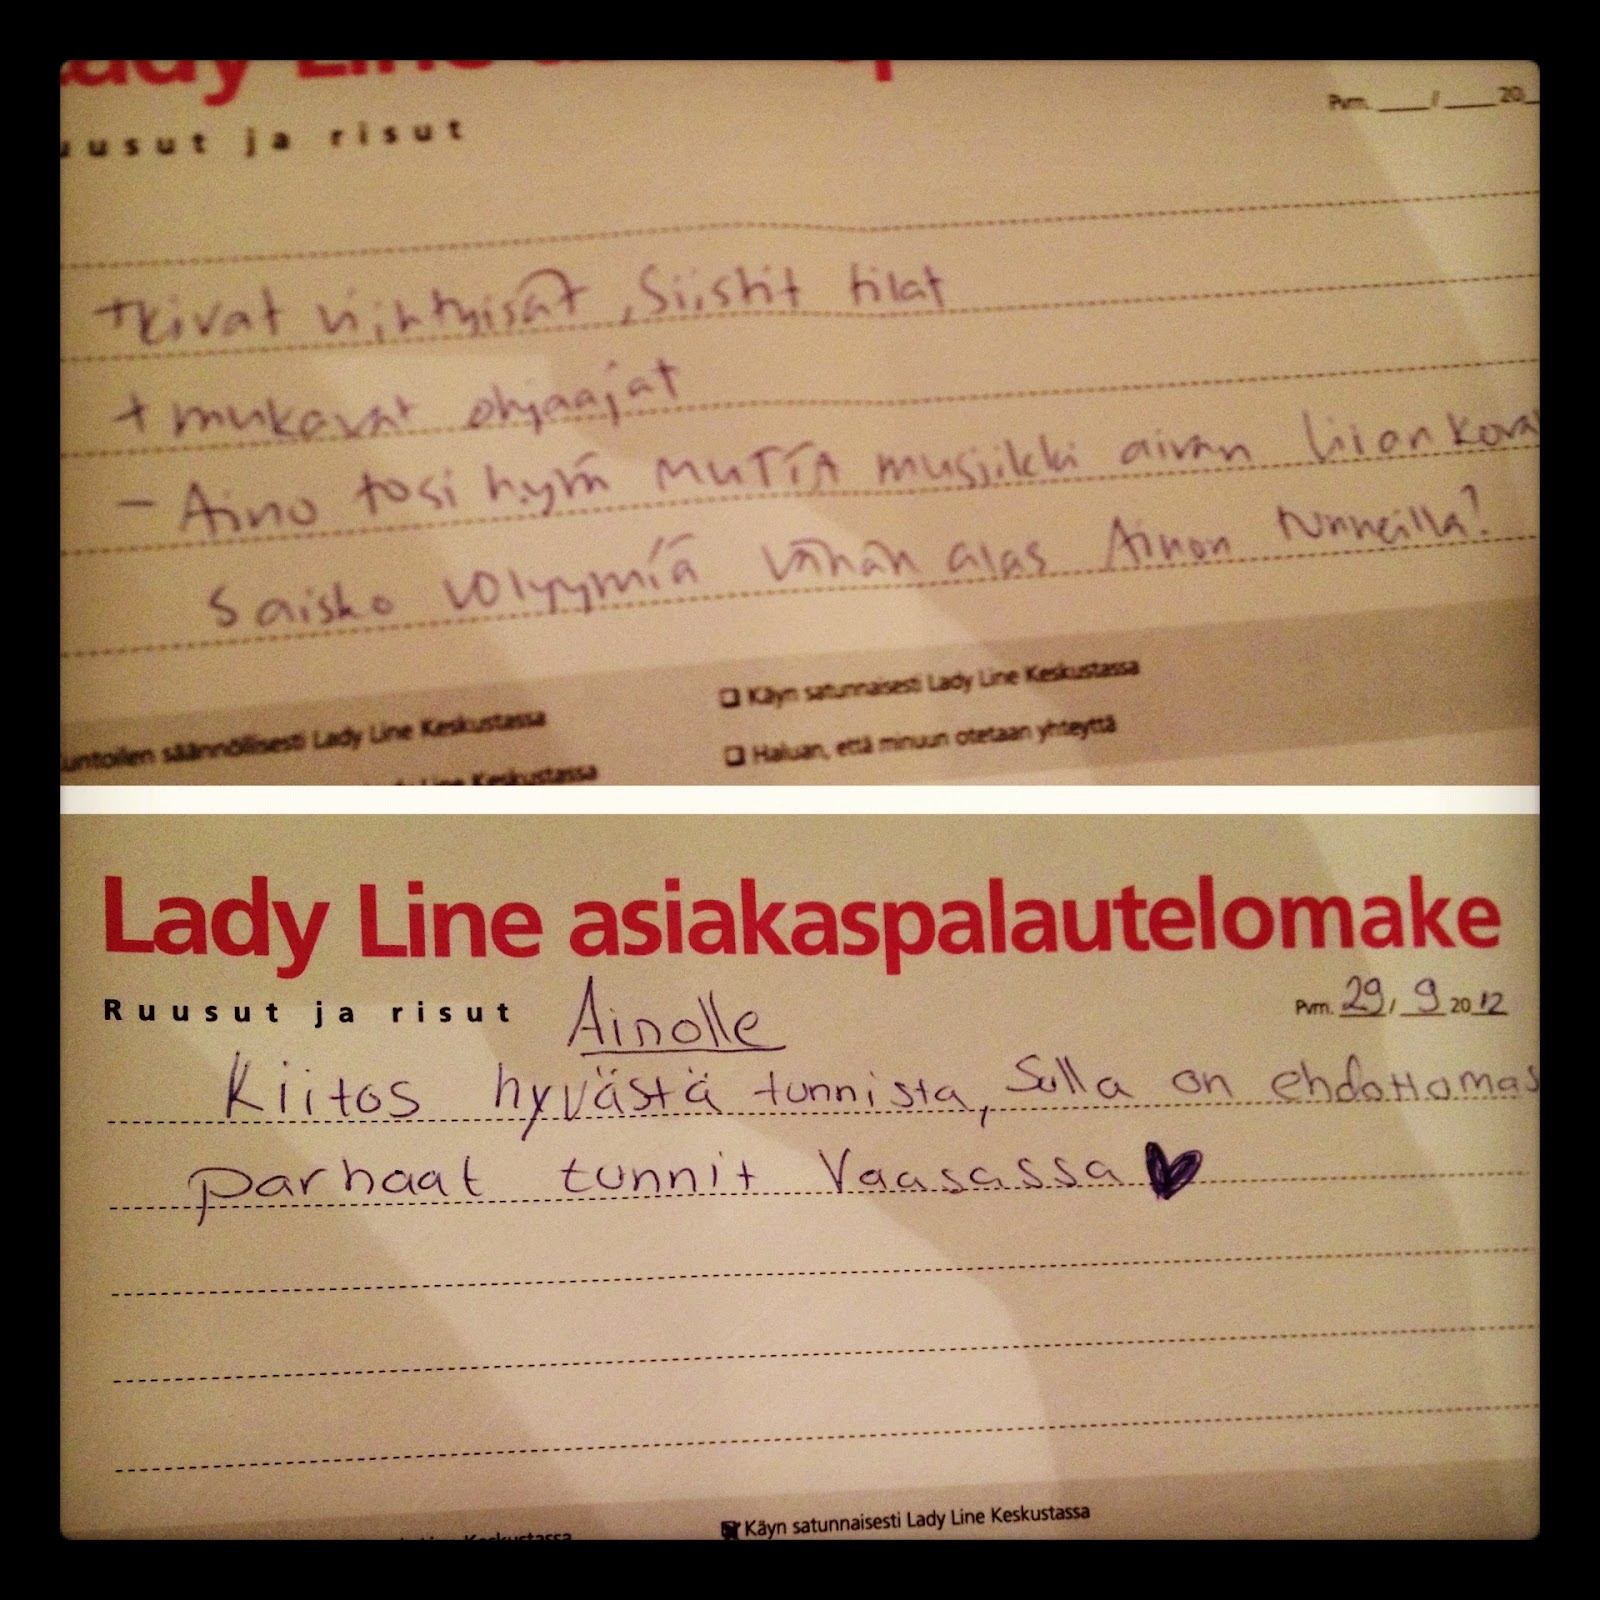 Lady Line
uusut ja risut
Pvm. ____/____20__
+kivat viihtyisät, Siistit tilat
+ mukavat ohjaajat
- Aino tosi hyvä MUTTA musiikki aivan liian kova
Saisko volyymiä vähän alas Ainon tunneilla?
untoilen säännöllisesti Lady Line Keskustassa
☐ Käyn satunnaisesti Lady Line Keskustassa
Line Keskustassa
☐ Haluan, että minuun otetaan yhteyttä
Lady Line asiakaspalautelomake
Ruusut ja risut
Ainolle
Pvm. 29/ 9 2012
Kiitos hyvästä tunnista, Sulla on ehdottomas
parhaat tunnit Vaasassa ♥
Keskustassa
☒ Käyn satunnaisesti Lady Line Keskustassa